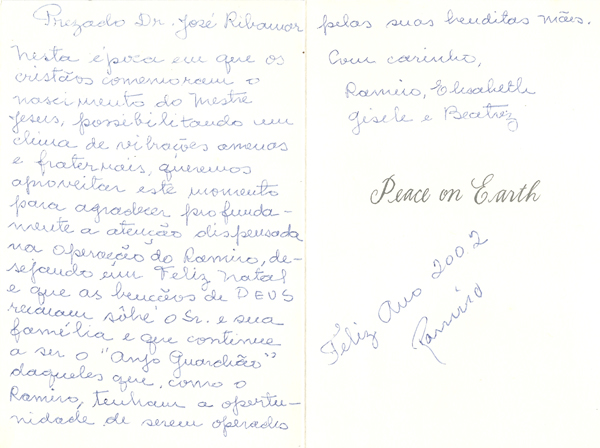 Prezado Dr. José Ribamar
Nesta época em que os
cristãos comemoram o
nascimento do Mestre
Jesus, possibilitando um
clima de vibrações amenas
e fraternais, queremos
aproveitar este momento
para agradecer profunda-
mente a atenção dispensada
na operação do Ramiro, de-
sejando um Feliz Natal
e que as bençãos de DEUS
recaiam sôbre o Sr. e sua
família e que continue
a ser o "Anjo Guardião"
daqueles que, como o
Ramiro, tenham a oportu-
nidade de serem operados
pelas suas benditas mãos.
Com carinho,
Ramiro, Elisabeth
Gisele e Beatriz
Peace on Earth
Feliz Ano 2002
Ramiro